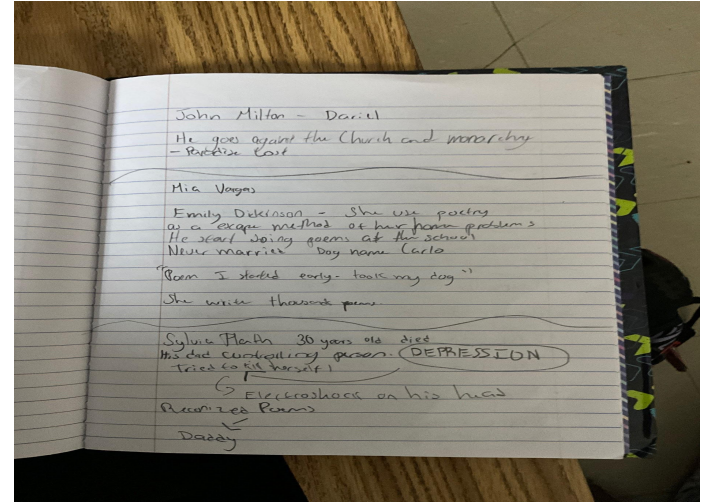 John Milton - Daniel
He goes against the Church and monarchy
- Paradise Lost
Mia Vargas
Emily Dickinson - She use poetry
as a excape method of her home problems
He start doing poems at the school
Never married Dog name Carlo
"Poem I started early - took my dog"
She write thousand poems
Sylvia Plath 30 years old died
His dad controlling person. DEPRESSION
Tried to kill herself!
Electroshock on his head
Reconized Poems
Daddy